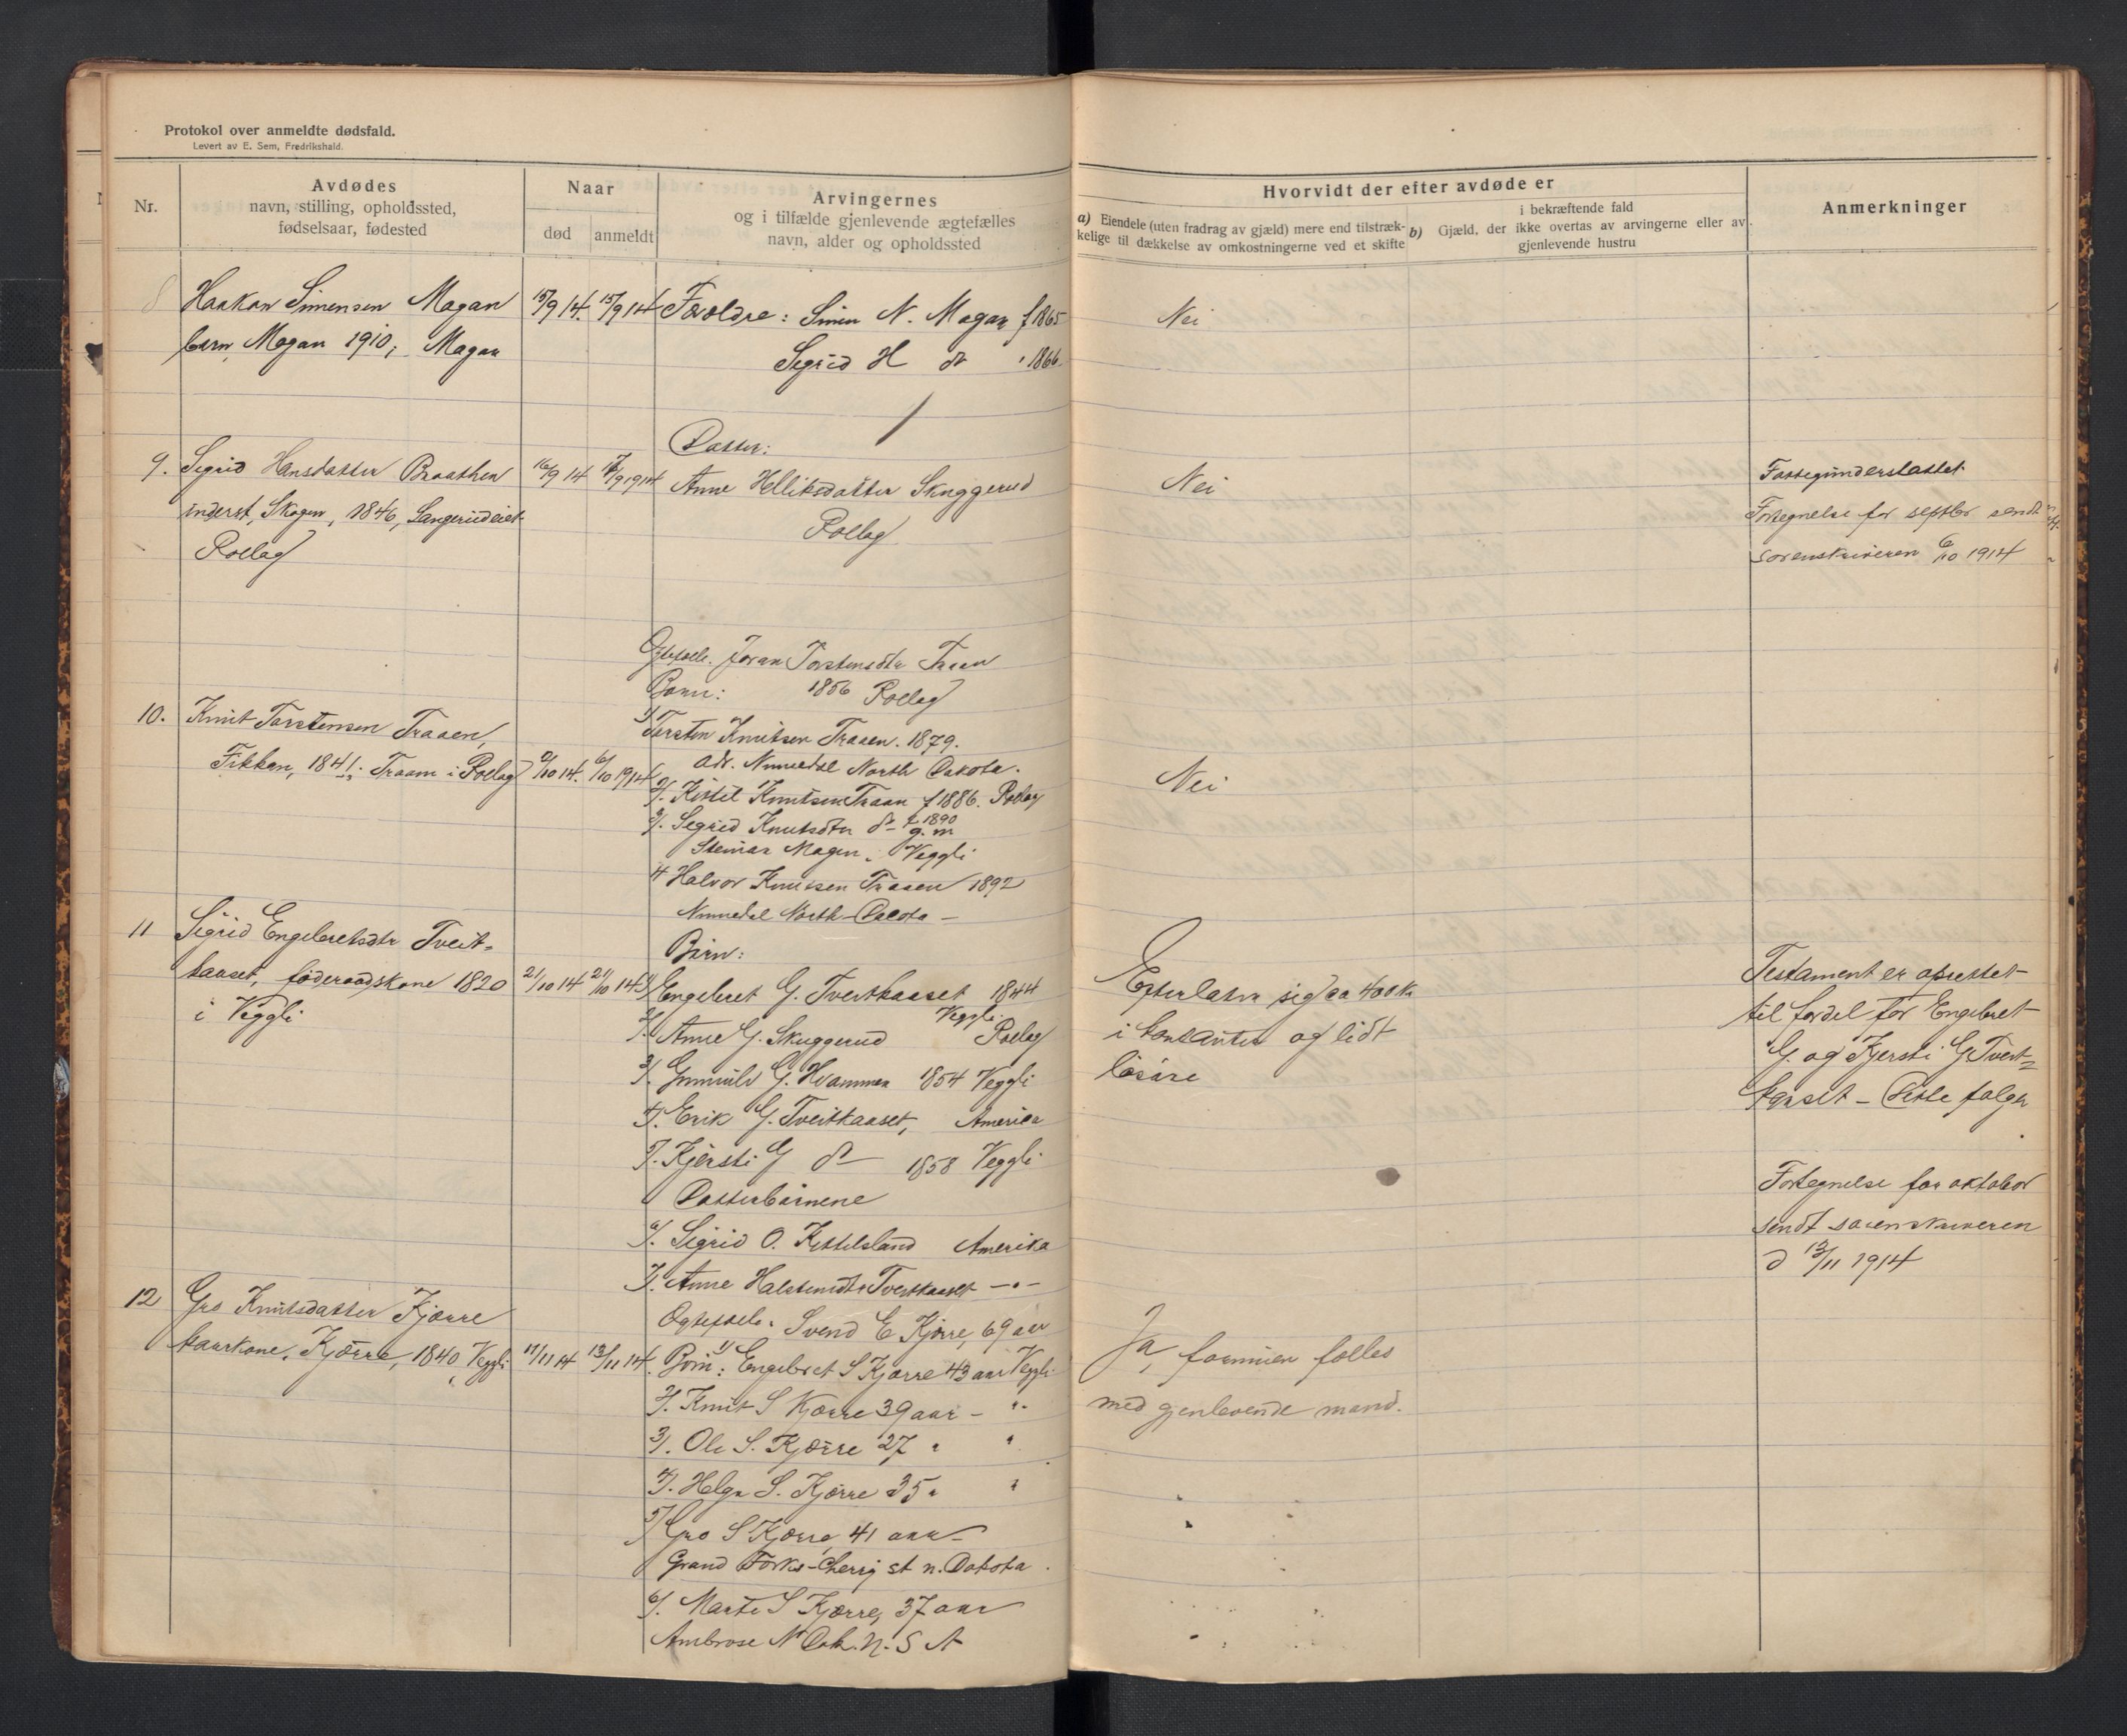 Protokol over anmeldte dødsfald.
Levert av E. Sem, Fredrikshald.
Nr.
Avdødes
navn, stilling, opholdssted,
fødselsaar, fødested
Naar
død
anmeldt
Arvingernes
og i tilfælde gjenlevende ægtefælles
navn, alder og opholdssted
Hvorvidt der efter avdøde er
a) Eiendele (uten fradrag av gjæld) mere end tilstræk-
kelige til dækkelse av omkostningerne ved et skifte
b) Gjæld, der
i bekræftende fald
ikke overtas av arvingerne eller av
gjenlevende hustru
Anmerkninger
8 Haakon Simensen Magan
barn, Magan 1910, Magan
15/9 14. 15/9 14
Foroldre: Simen N. Magan f 1865
Sigrid H do " 1866
Nei
9. Sigrid Hansdatter Braathen
inderst, Skogen, 1846, Langerudeiet
Rollag
16/9 14
Datter:
Anne Helliksdatter Skuggerud
Rollag
Nei
Fattigunderstøttet
Fortegnelse for septbr sendt
sorenskriveren 6/10 1914
10. Knut Torstensen Traaen,
Fikkan, 1841. Traaen i Rollag
2/10 14. 6/10 1914
Joran Torstensdtr Traaen
Born: 1856 Rollag
1/ Torsten Knutsen Traaen. 1879.
adr. Numedal North Dakota.
2/. Kittil Knutsen Traaen f 1886. Rollag
3/. Sigrid Knutsdtr do f 1890
g. m
Steinar Magan, Veggli
4 Halvor Knutsen Traaen 1892
Numedal North-Dacota -
Nei
11 Sigrid Engebretsdtr Tveit-
kaaset, føderaadskone 1820
i Veggli
21/10 14 21/10 14
Børn:
1/ Engebret G. Tveitkaaset 1844
Veggli.
2/. Anne G. Skuggerud Rollag
3/. Gunnuld G. Hvammen 1854 Veggli
4/. Erik G. Tveitkaaset, America
5/. Kjersti G do 1858 Veggli
Datterbørnene
6/. Sigrid O. Kittilsland Amerika
7/. Anne Halstensdtr Tveitkaaset - " -
Efterlater sig ca 400 kr
i kontanter og lidt
løsøre
Testament er oprettet
til fordel for Engebret
G. og Kjersti G Tveit-
kaaset - Dette følger
Fortegnelse for oktober
sendt sorenskriveren
d 13/11 1914
12 Gro Knutsdatter Kjørre
kaarkone, Kjørre, 1840, Veggli
11/11 14 13/11 14.
Svend E Kjørre, 69 aar
Børn: 1/ Engebret S Kjørre 43 aar Veggli
2/. Knut S Kjørre 39 aar - "
3/. Ole S. Kjørre 27 " "
4/. Helge S. Kjørre 35 " "
5/ Gro S Kjørre, 41 aar
Grand Forks - Cherry st n. Dakota.
6/. Marte S Kjørre, 37 aar
Ambrose N Dak. N. S A
Ja, formuen fælles
med gjenlevende mand.